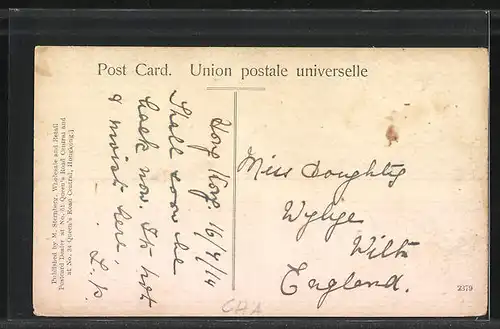 Post Card. Union postale universelle
Hong Kong 16/4/14
Shall soon be
back now. It's hot
& moist here.
L. P.
Miss Doughty
Wylye
Wilts
England.
Published by M. Sternberg, Wholesale and Retail
Postcard Dealer at No. 51 Queen's Road Central and
at No. 34 Queen's Road Central, Hongkong.]
2379
CHA